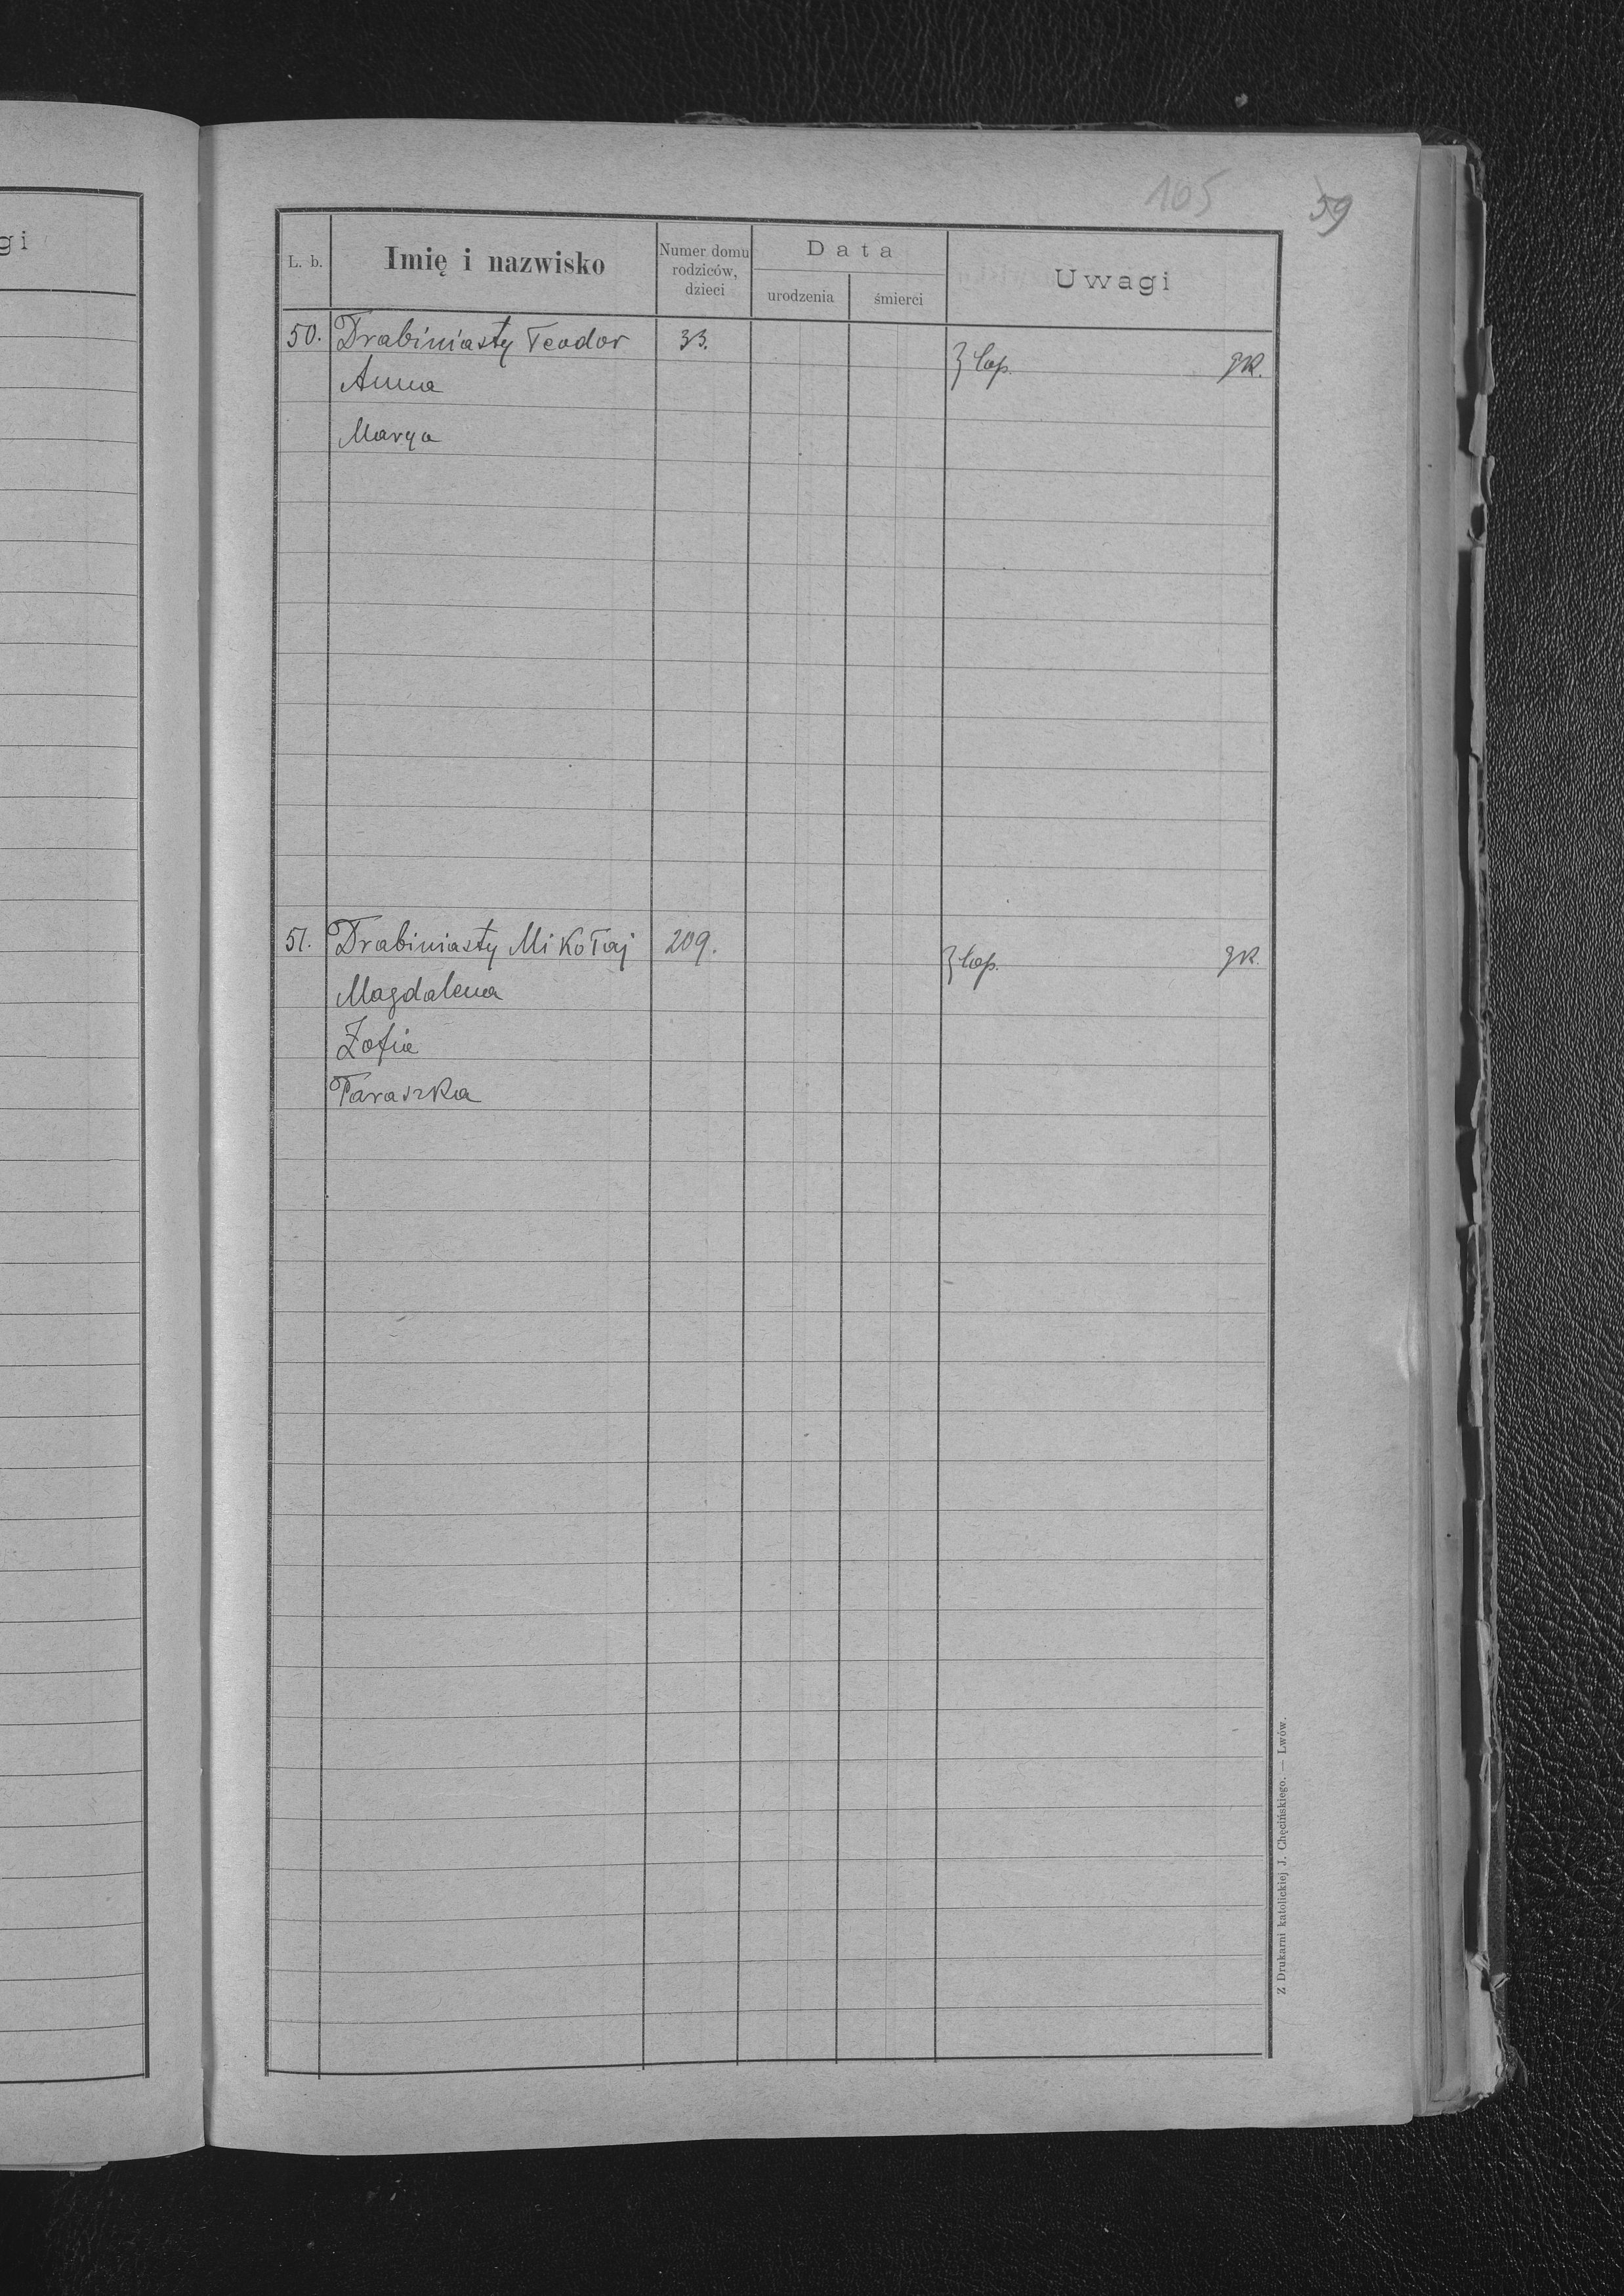 105
59
gi
L. b.
Imię i nazwisko
Numer domu
rodziców,
dzieci
Data
urodzenia
śmierci
Uwagi
50. Drabiniasty Teodor 33.
} łap. gk.
Anna
Marya
51. Drabiniasty Mikołaj 209.
} łap. gk.
Magdalena
Zofia
Paraszka
Z Drukarni katolickiej J. Chęcińskiego. — Lwów.